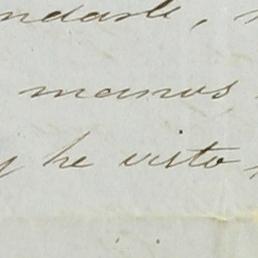 ndarle,
manos
y he visto